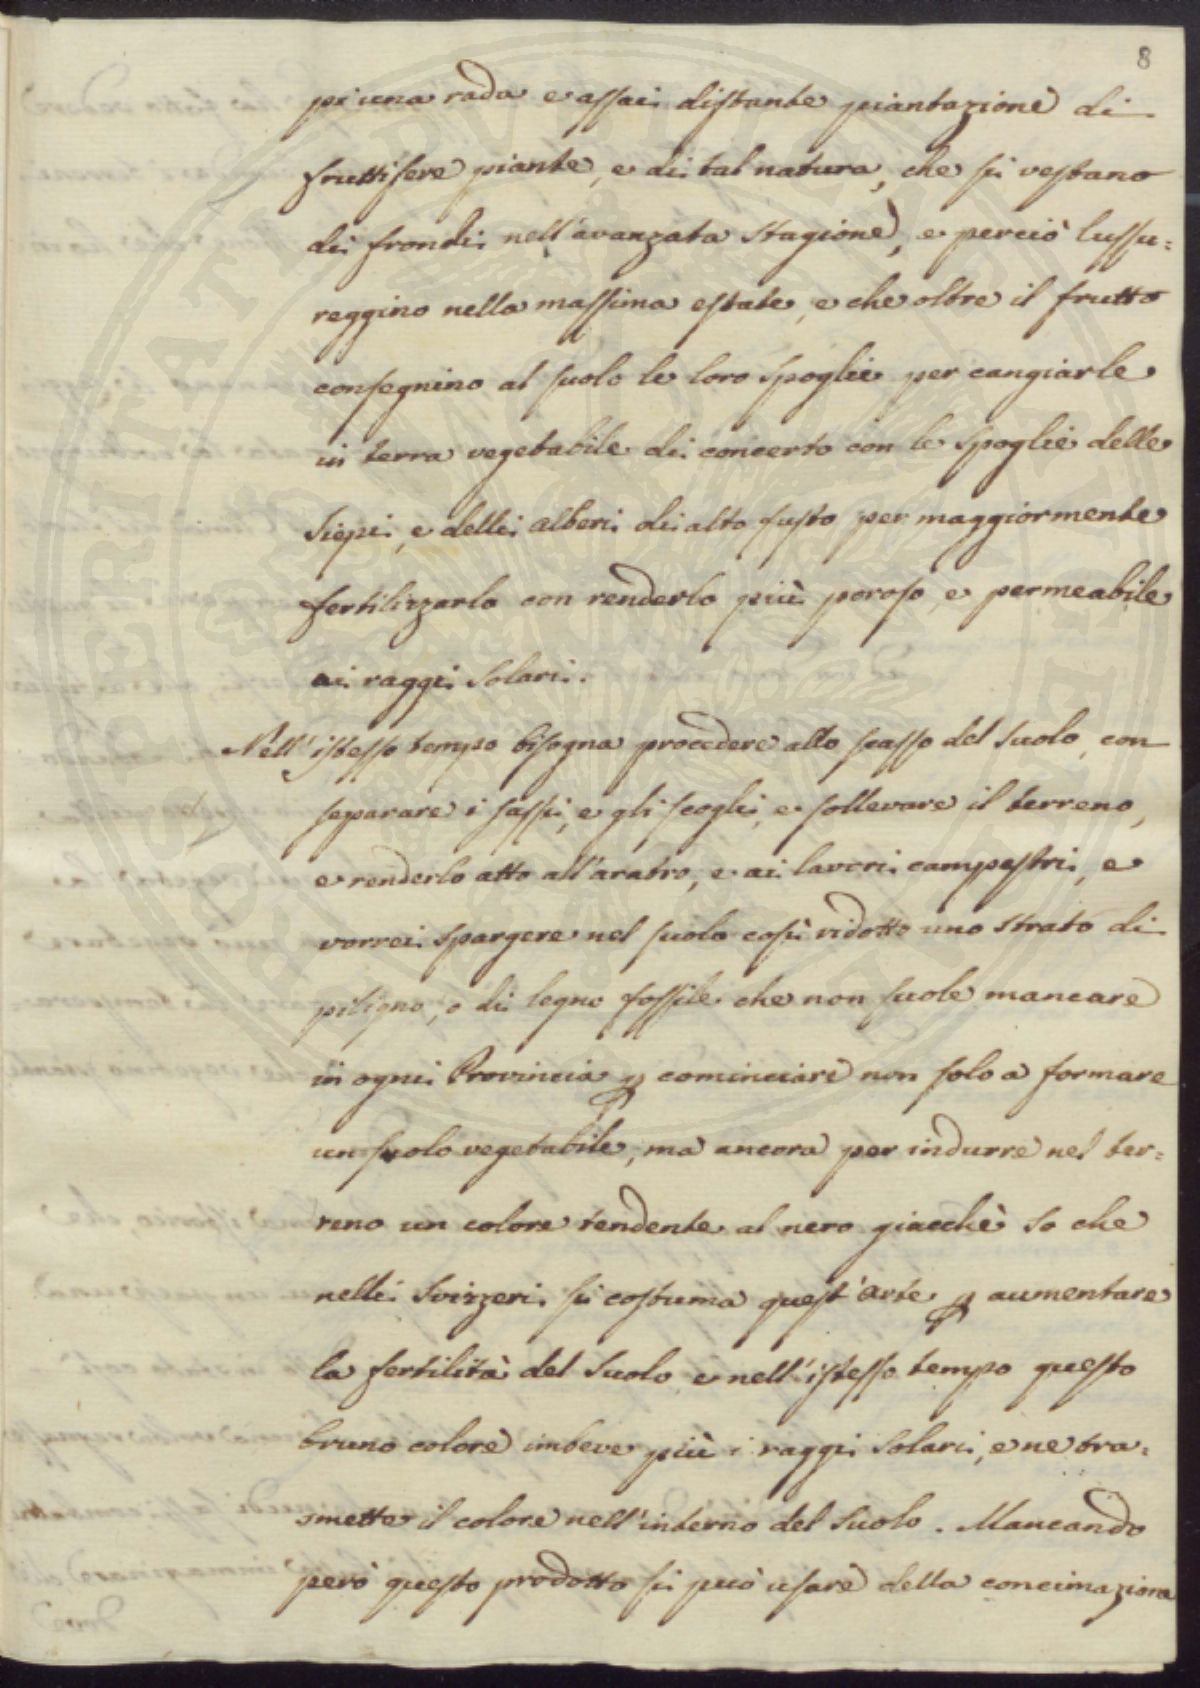 8
pr una rada e assai distante piantazione di
fruttifere piante, e di tal natura, che si vestano
di frondi nell'avanzata Stagione, e perciò lussu=
reggino nella massima estate, e che oltre il frutto
consegnino al suolo le loro Spoglie per cangiarle
in terra vegetabile di concerto con le Spoglie delle
Siepi, e delli alberi di alto fusto per maggiormente
fertilizzarlo con renderlo più poroso, e permeabile
ai raggi Solari.
Nell'istesso tempo bisogna procedere allo scasso del Suolo, con
separare i sassi, e gli scogli, e sollevare il terreno,
e renderlo atto all'aratro, e ai lavori campestri, e
vorrei Spargere nel suolo così ridotto uno Strato di
piligno, o di legno fossile che non suole mancare
in ogni Provincia p cominciare non solo a formare
un suolo vegetabile, ma ancora per indurre nel ter=
reno un colore tendente al nero giacchè So che
nelli Svizzeri si costuma quest'arte p aumentare
la fertilità del Suolo e nell'istesso tempo questo
bruno colore imbeve più i raggi Solari, e ne tra=
smette il colore nell'interno del Suolo. Mancando
però questo prodotto si può usare della concimazione